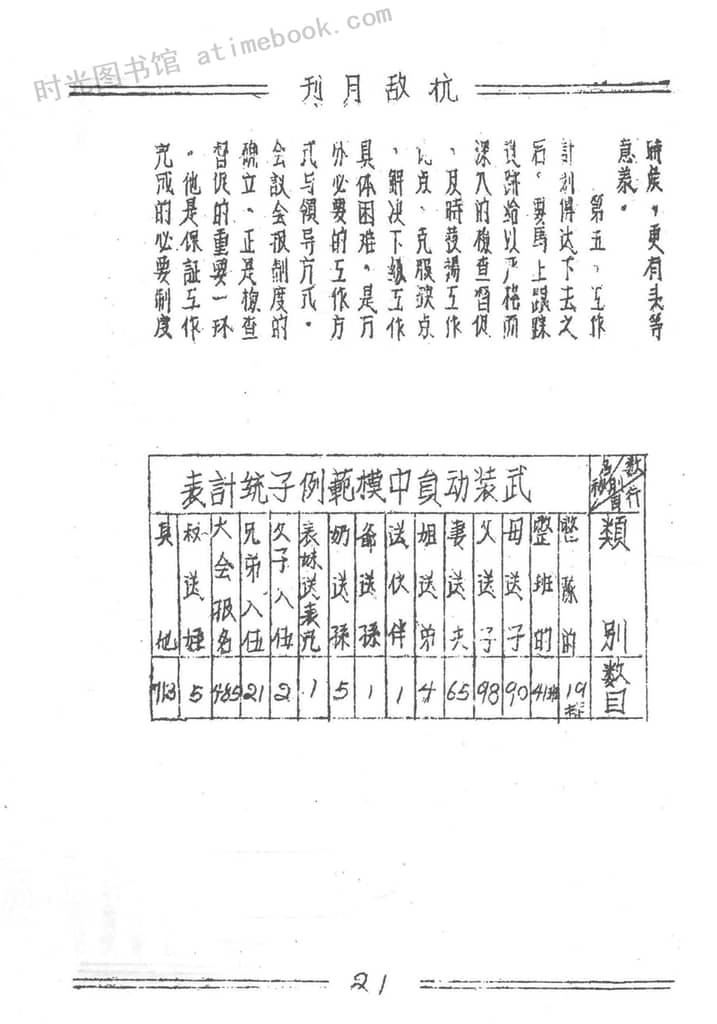 时光图书馆 atimebook.com
抗敌月刊
時候，更有头等
意義。
第五，工作
計划傳达下去之
后，要馬上跟踪
追跡給以严格而
深入的檢查督促
，及時發揚工作
优点、克服缺点
，解决下級工作
具体困难。是万
分必要的工作方
式与領导方式。
会議会报制度的
确立、正是檢查
督促的重要一环
。他是保証工作
完成的必要制度
武装动員中模範例子統計表
類别
数目
整隊的
19
整班的
41班
母送子
90
父送子
98
妻送夫
65
姐送弟
4
送伙伴
1
爺送孫
1
奶送孫
5
表妹送表兄
1
父子入伍
2
兄弟入伍
21
大会报名
485
叔送姪
5
其他
713
21